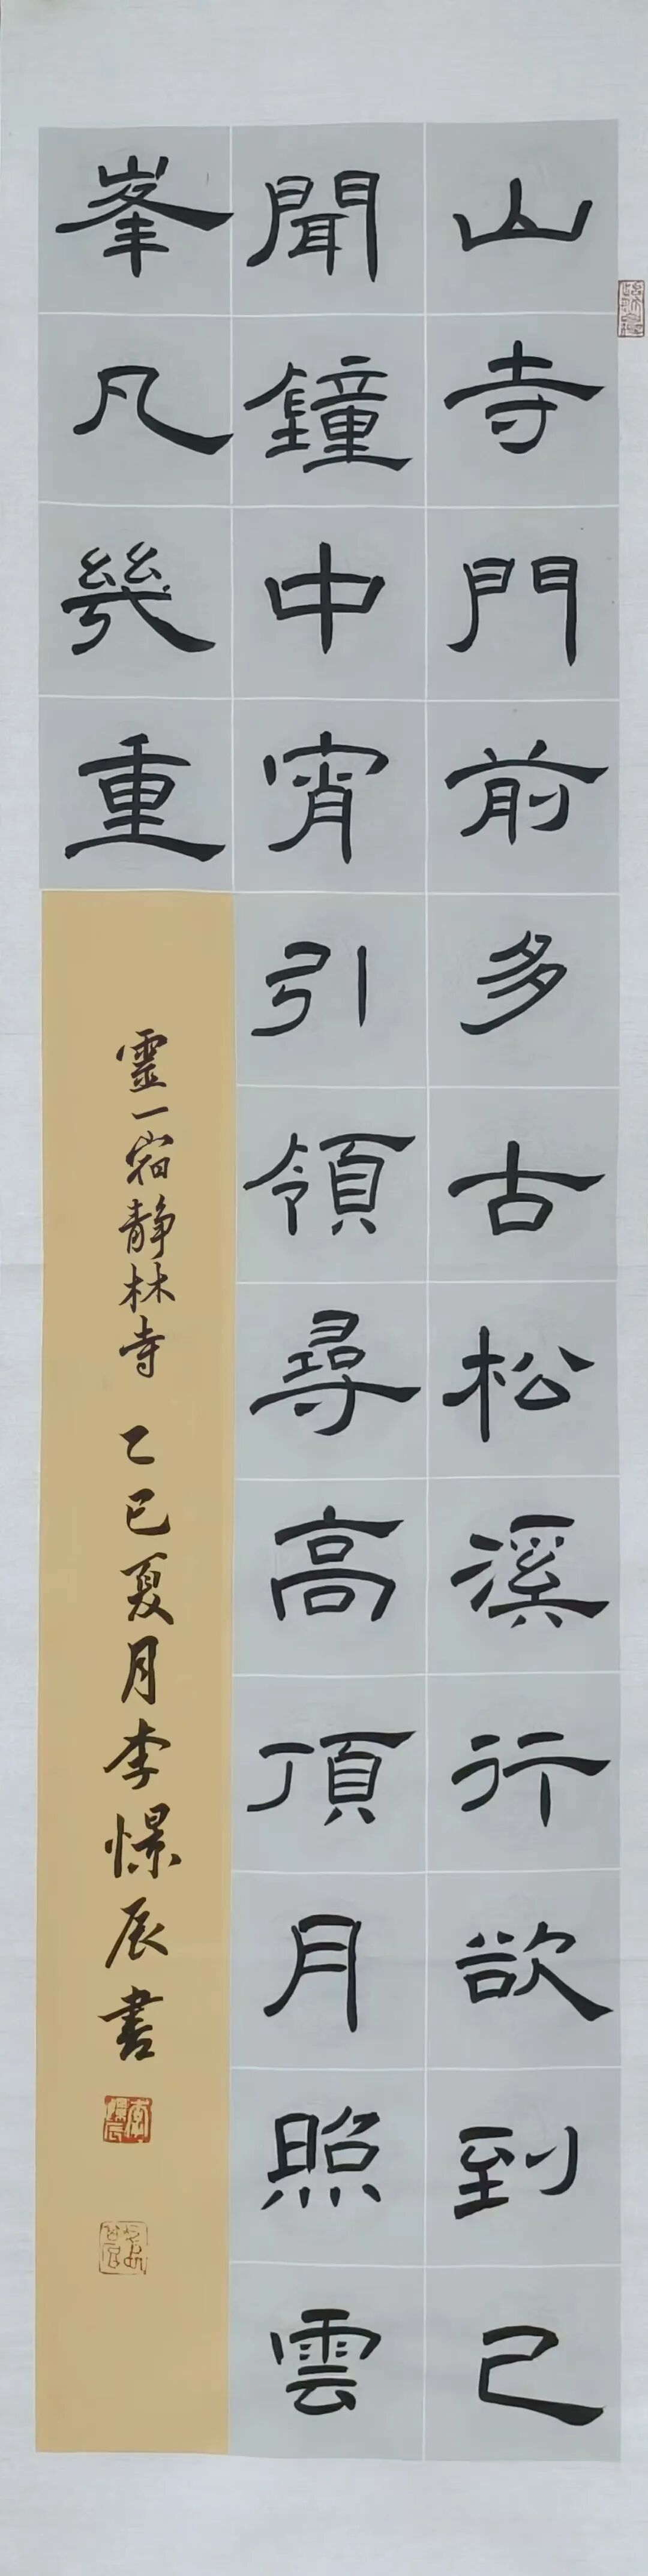 山寺門前多古松溪行欲到已
聞鐘中宵引領尋高頂月照雲
峯凡幾重
靈一宿静林寺 乙巳夏月李憬辰書